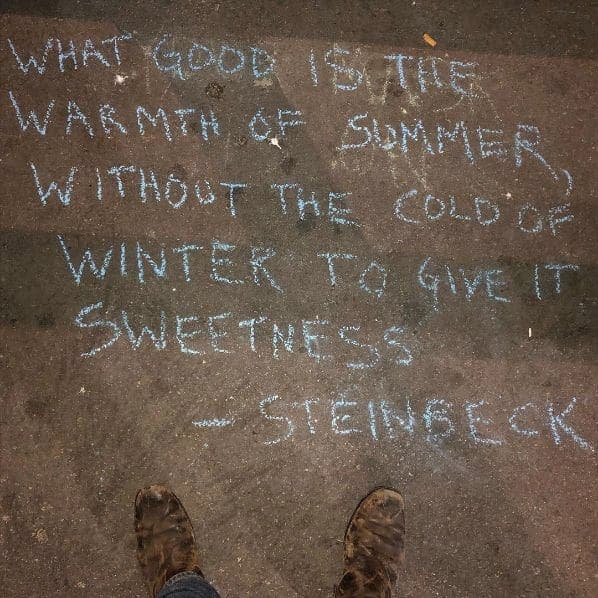 WHAT GOOD IS THE
WARMTH OF SUMMER,
WITHOUT THE COLD OF
WINTER TO GIVE IT
SWEETNESS
- STEINBECK